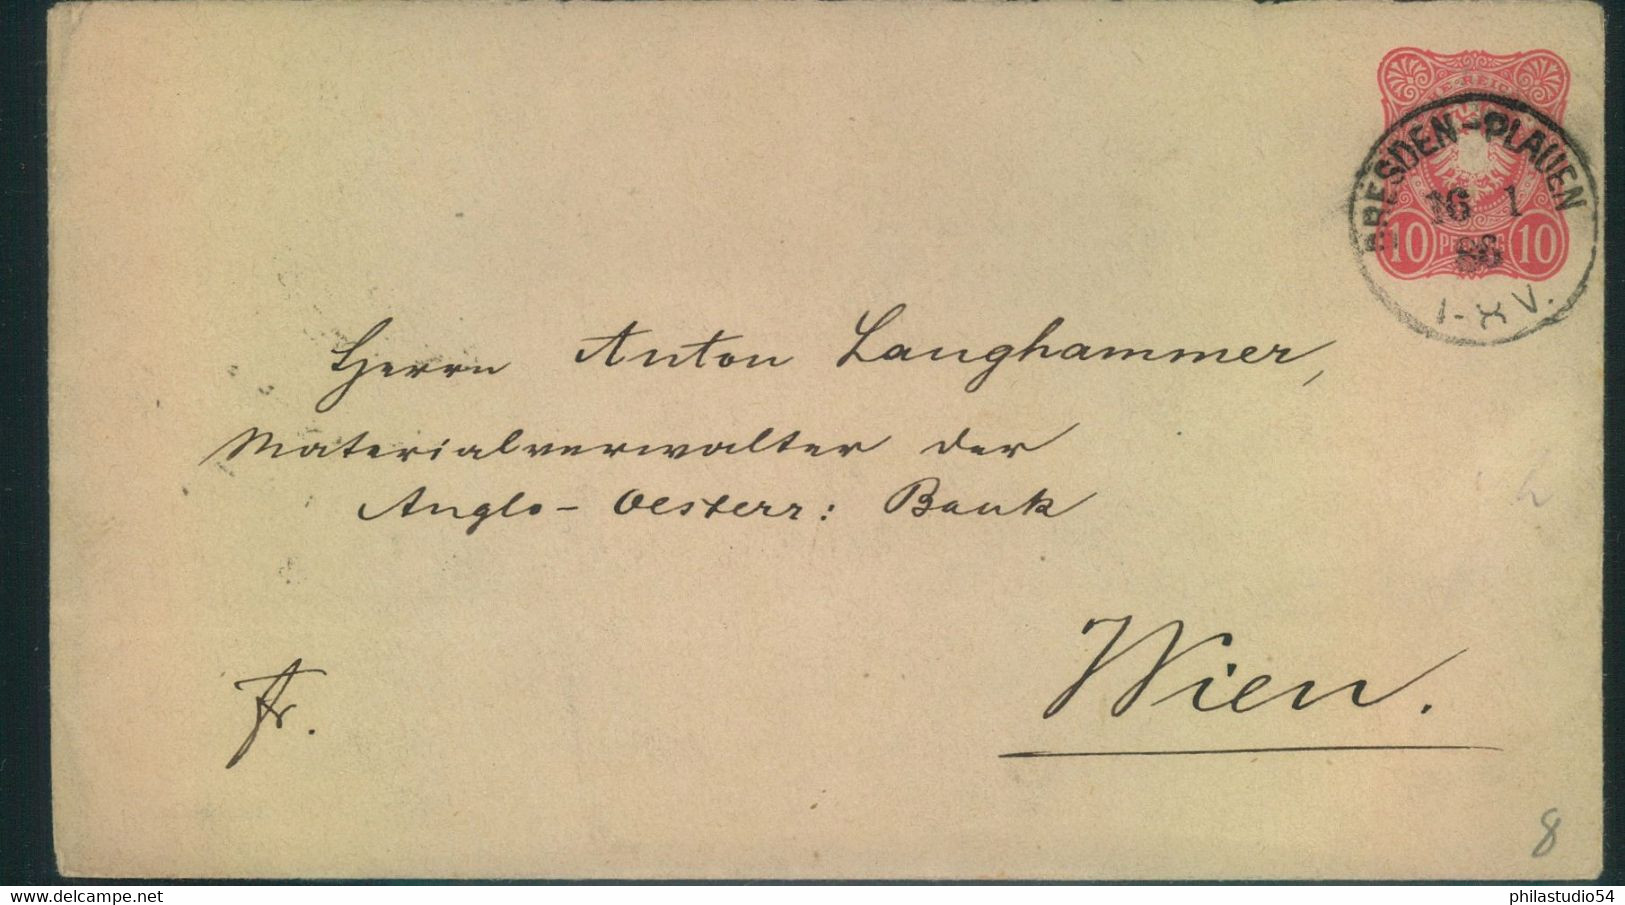 DRESDEN-PLAUEN
16 1
86
1-XV.
10 PFENNIG 10
Herrn Anton Langhammer,
Materialverwalter der
Anglo-Oesterr: Bank
Wien.
Fr.
8
delcampe.net
philastudio54